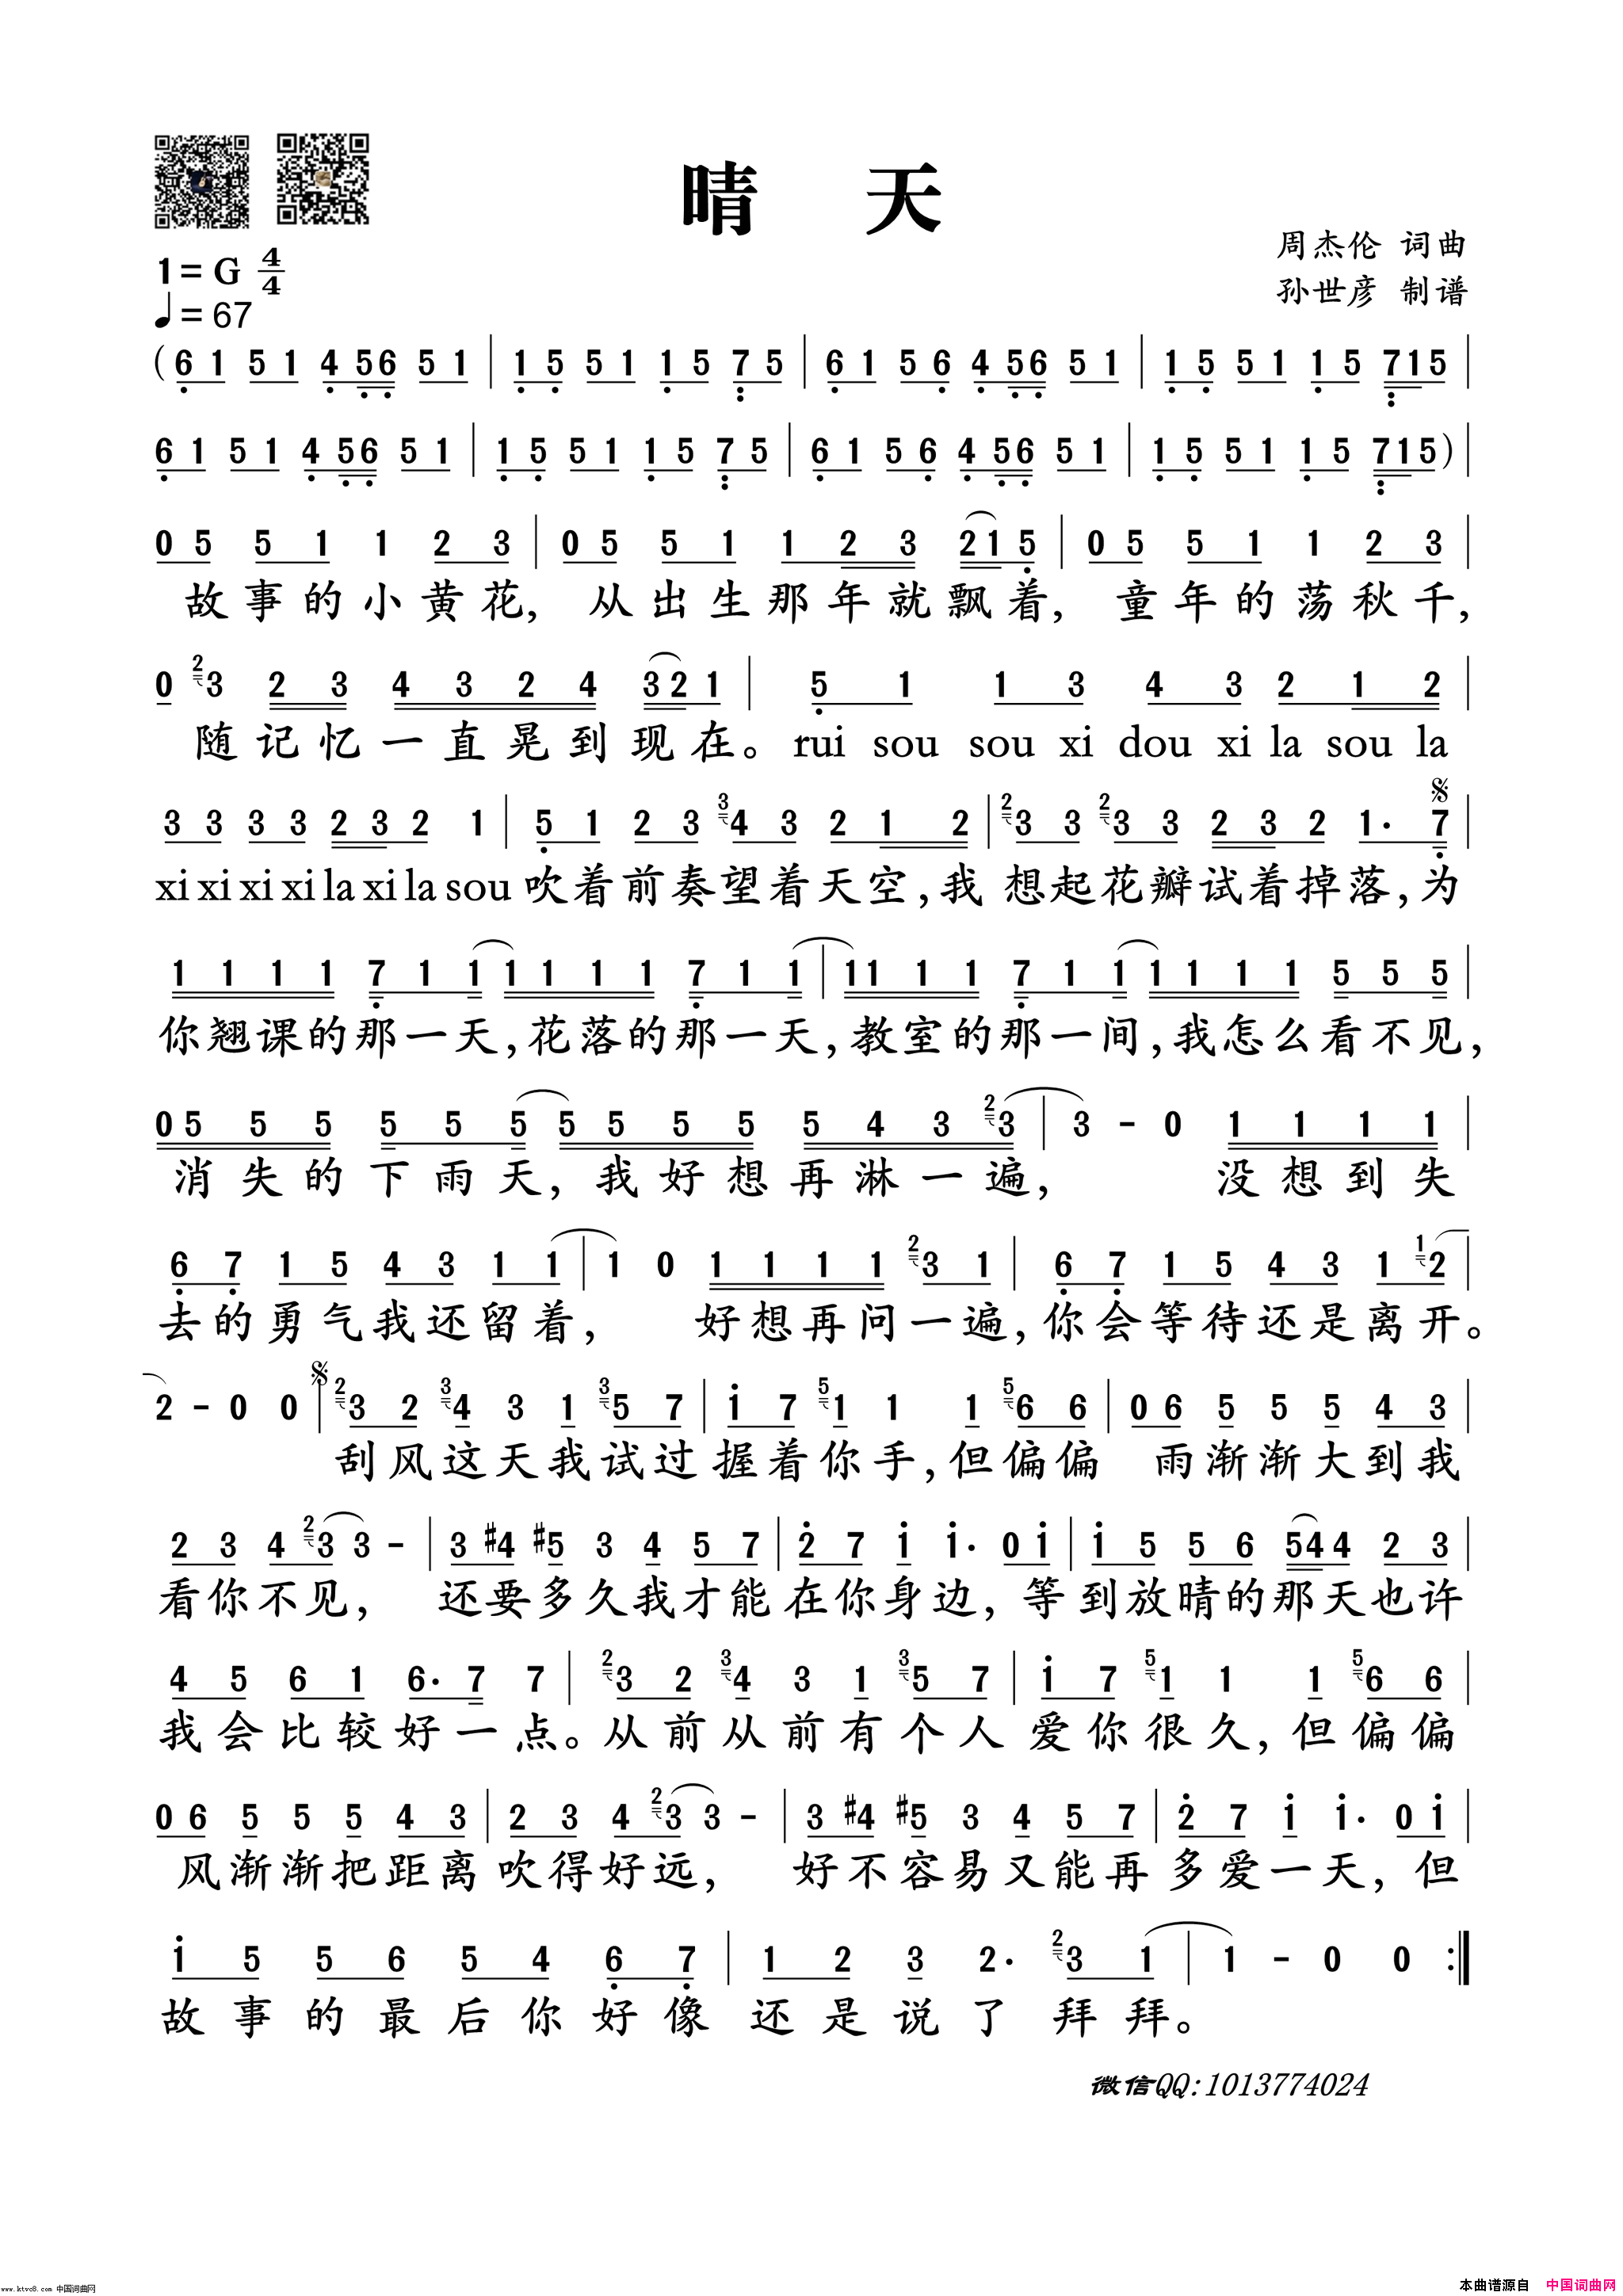 晴 天
周杰伦 词曲
孙世彦 制谱
1=G 4/4
♩=67
(6 1 5 1 4 5 6 5 1 | 1 5 5 1 1 5 7 5 | 6 1 5 6 4 5 6 5 1 | 1 5 5 1 1 5 7 1 5 |
6 1 5 1 4 5 6 5 1 | 1 5 5 1 1 5 7 5 | 6 1 5 6 4 5 6 5 1 | 1 5 5 1 1 5 7 1 5) |
0 5 5 1 1 2 3 | 0 5 5 1 1 2 3 2 1 5 | 0 5 5 1 1 2 3 |
故事的小黄花, 从出生那年就飘着, 童年的荡秋千,
0 2 3 2 3 4 3 2 4 3 2 1 | 5 1 1 3 4 3 2 1 2 |
随记忆一直晃到现在。rui sou sou xi dou xi la sou la
3 3 3 3 2 3 2 1 | 5 1 2 3 3 4 3 2 1 2 | 2 3 3 2 3 3 2 3 2 1· 7 |
xi xi xi xi la xi la sou 吹着前奏望着天空,我 想起花瓣试着掉落,为
1 1 1 1 7 1 1 1 1 1 1 7 1 1 | 1 1 1 1 7 1 1 1 1 1 1 5 5 5 |
你翘课的那一天,花落的那一天,教室的那一间,我怎么看不见,
0 5 5 5 5 5 5 5 5 5 5 5 4 3 2 3 | 3 - 0 1 1 1 1 |
消失的下雨天,我好想再淋一遍, 没想到失
6 7 1 5 4 3 1 1 | 1 0 1 1 1 1 2 3 1 | 6 7 1 5 4 3 1 1 2 |
去的勇气我还留着, 好想再问一遍,你会等待还是离开。
2 - 0 0 | 2 3 2 3 4 3 1 3 5 7 | 1 7 5 1 1 1 5 6 6 | 0 6 5 5 5 4 3 |
刮风这天我试过握着你手,但偏偏 雨渐渐大到我
2 3 4 2 3 3 - | 3 #4 #5 3 4 5 7 | 2 7 1 1· 0 1 | 1 5 5 6 5 4 4 2 3 |
看你不见, 还要多久我才能在你身边,等到放晴的那天也许
4 5 6 1 6· 7 7 | 2 3 2 3 4 3 1 3 5 7 | 1 7 5 1 1 1 5 6 6 |
我会比较好一点。从前从前有个人爱你很久,但偏偏
0 6 5 5 5 4 3 | 2 3 4 2 3 3 - | 3 #4 #5 3 4 5 7 | 2 7 1 1· 0 1 |
风渐渐把距离吹得好远, 好不容易又能再多爱一天,但
1 5 5 6 5 4 6 7 | 1 2 3 2· 2 3 1 | 1 - 0 0 :|
故事的最后你好像还是说了拜拜。
微信QQ:1013774024
www.ktvc8.com 中国词曲网
本曲谱源自 中国词曲网